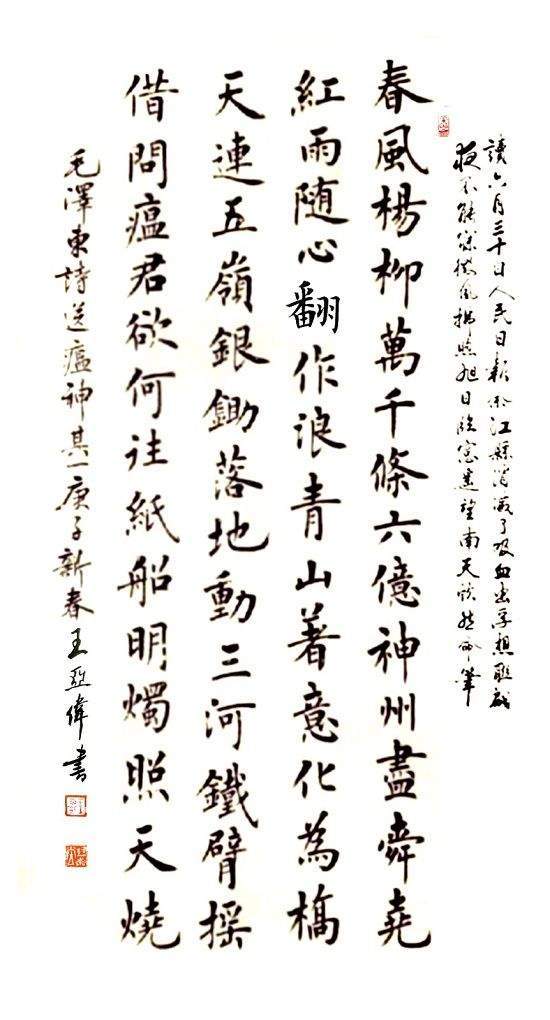 讀六月三十日人民日報余江縣消滅了吸血虫浮想聯翩
夜不能寐微風拂照旭日臨窓遙望南天欣然命筆
春風楊柳萬千條六億神州盡舜堯
紅雨随心翻作浪青山著意化為橋
天連五嶺銀鋤落地動三河鐵臂摇
借問瘟君欲何往紙船明燭照天燒
毛澤東詩送瘟神其一庚子新春王亞偉書